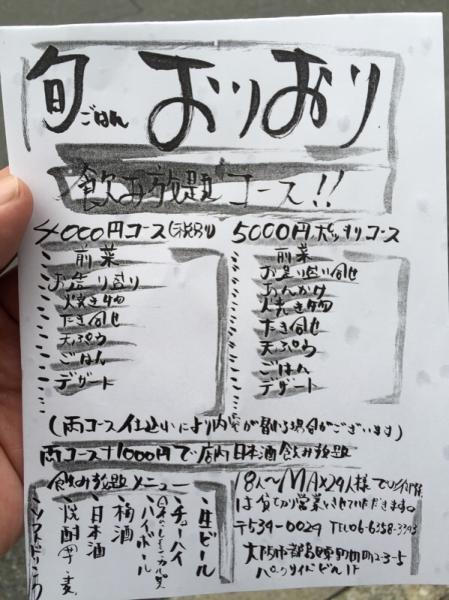 旬ごはん おりおり
飲み放題コース!!
4000円コース(税別)
前菜
お造り盛り
焼き物
たき合せ
天ぷら
ごはん
デザート
5000円 コース
前菜
お造り盛り合せ
焼き物
たき合せ
天ぷら
ごはん
デザート
(両コース仕込みにより内容が異なる場合がございます)
両コース+1000円で店内日本酒飲み放題
飲み放題メニュー
・生ビール
・チューハイ
・ハイボール
・梅酒
・日本酒
・焼酎 芋・麦
・ソフトドリンク
18人〜MAX29人様で
は貸し切り営業いたします
〒534-0024 TEL06-6358-3393
大阪市都島区東野田町2-3-5
パークサイドビル1F